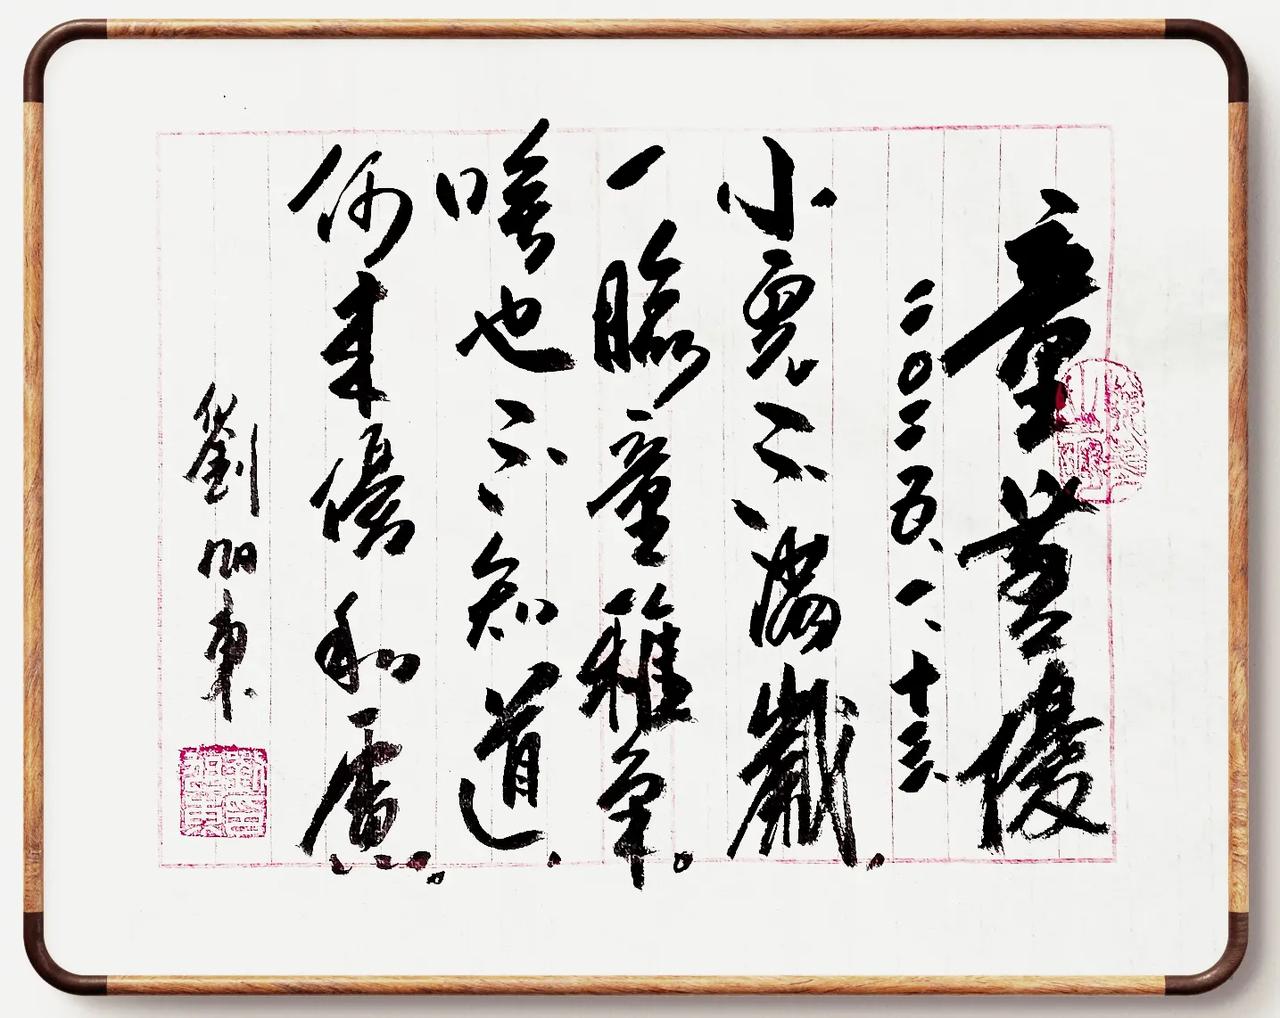 童優
二〇二五、一、十三
小兒不滿歲，
一臉童稚。
啥也不知道，
何來優和慮。
劉旭東